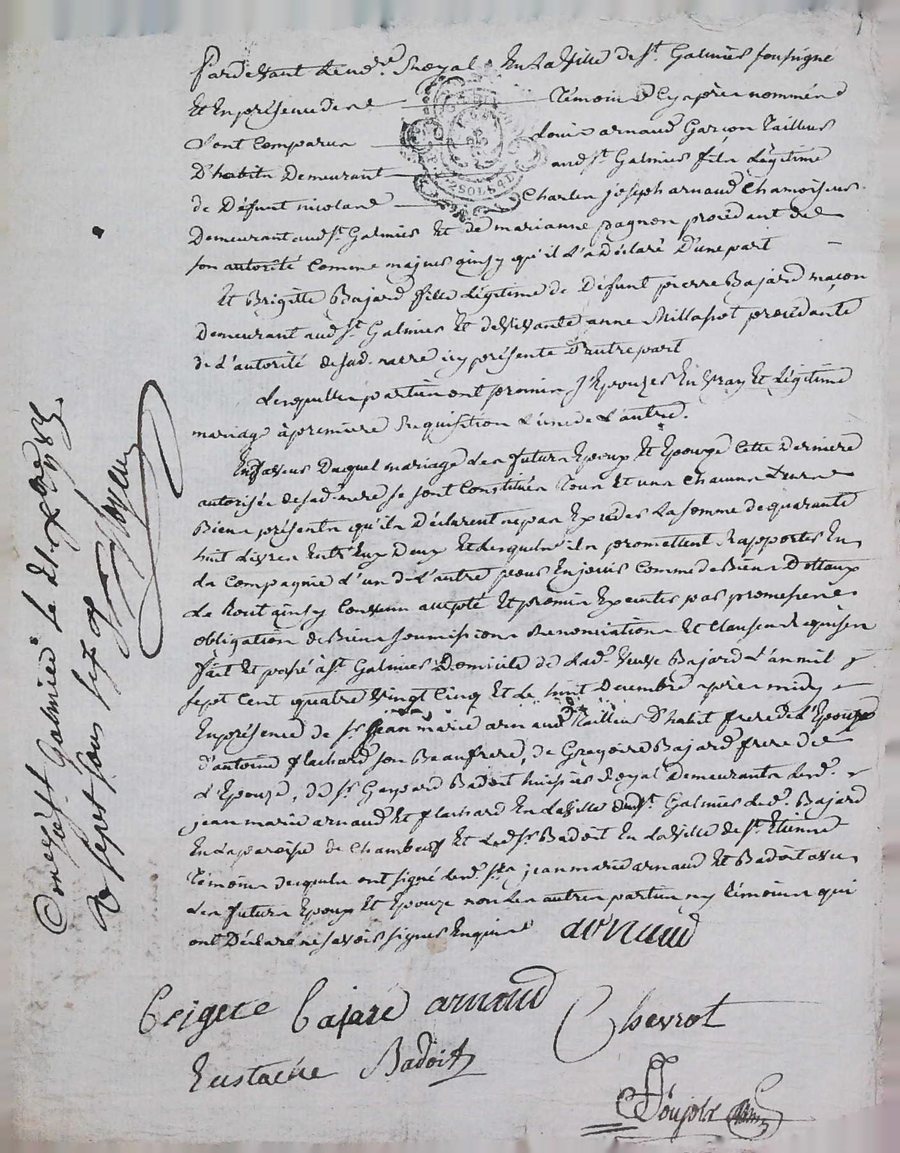 Pardevant le no.re Royal En la Ville de St. Galmier soussigné
Et En présence des témoins Cy après nommés
Sont Comparus Louis arnaud Garçon Tailleur
D'habits Demeurant aud. St. Galmier fils Légitime
de Défunt Charles joseph arnaud Chamoiseur
Demeurant aud. St. Galmier Et de marianne pagnon procédant de
son autorité Comme majeur ainsy qu'il l'a déclaré D'une part
Et Brigitte Bajard fille Légitime de Défunt pierre Bajard maçon
Demeurant aud. St. Galmier Et de vivante anne procédante
de L'autorité de sad. mère icy présente D'autre part
Lesquelles parties ont promis s'Epouzer En vray Et Légitime
mariage à première Réquisition L'une de L'autre.
En faveur Duquel mariage Les futurs Epoux Et Epouze Cette Dernière
autorisée de sad. mère se sont Constitués Tous Et uns Chacuns Leurs
Biens présents qu'ils Déclarent ne pas Excéder La somme de quarante
huit Livres Entr'Eux Deux Et Lesquels ils promettent Rapporter En
La Compagnie L'un de L'autre pour En jouir Comme de Biens Dottaux
Le tout ainsy Convenu accepté Et promis Exécuter par promesses
obligation de Biens soumissions Renonciations Et Clauses Requises
fait Et passé à St. Galmier Domicile de Lad. Veuve Bajard L'an mil
sept Cent quatre Vingt Cinq Et Le huit Decembre après midy
En présence de Sr. jean marie arnaud Tailleur D'habits frere de L'Epoux
d'antoine flachard son Beaufrere, de Gregoire Bajard frere de
L'Epouze, de Sr. Badoit huissier Royal Demeurants Lesd.
jean marie arnaud Et flachard En La Ville dud. St. Galmier Led. Bajard
En La paroisse de Chambeuf Et Led. Sr. Badoit En La Ville de St. Etienne
Témoins desquels ont signé Lesd. Srs. jean marie arnaud Et Badoit avec
Les futurs Epoux Et Epouze non Les autres parties ny témoins qui
ont Déclaré ne savoir signer Enquis
arnaud
Brigete Bajard arnaud Chevrot
Eustache Badoit
Controllé à St Galmier le 21 Xbre 1785.
R. sept sous six d.